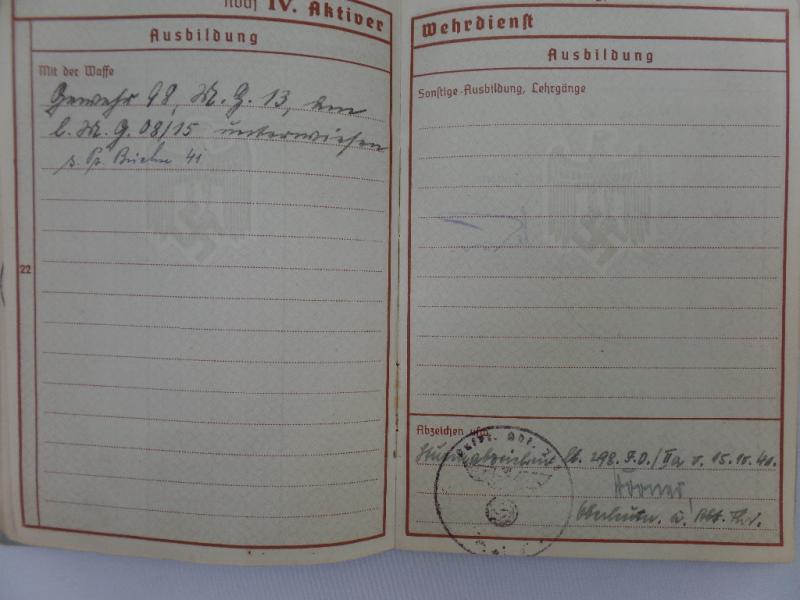 Noch IV. Aktiver
Ausbildung
Mit der Waffe
Gewehr 98, M. G. 13, am
l. M. G. 08/15 unterwiesen
s. Pz. Büchse 41
22
Wehrdienst
Ausbildung
Sonstige Ausbildung, Lehrgänge
Abzeichen usw.
Sturmabzeichen lt. 298. I.D./IIa v. 15.10.41.
Oberleutn. u. Abt. Adj.